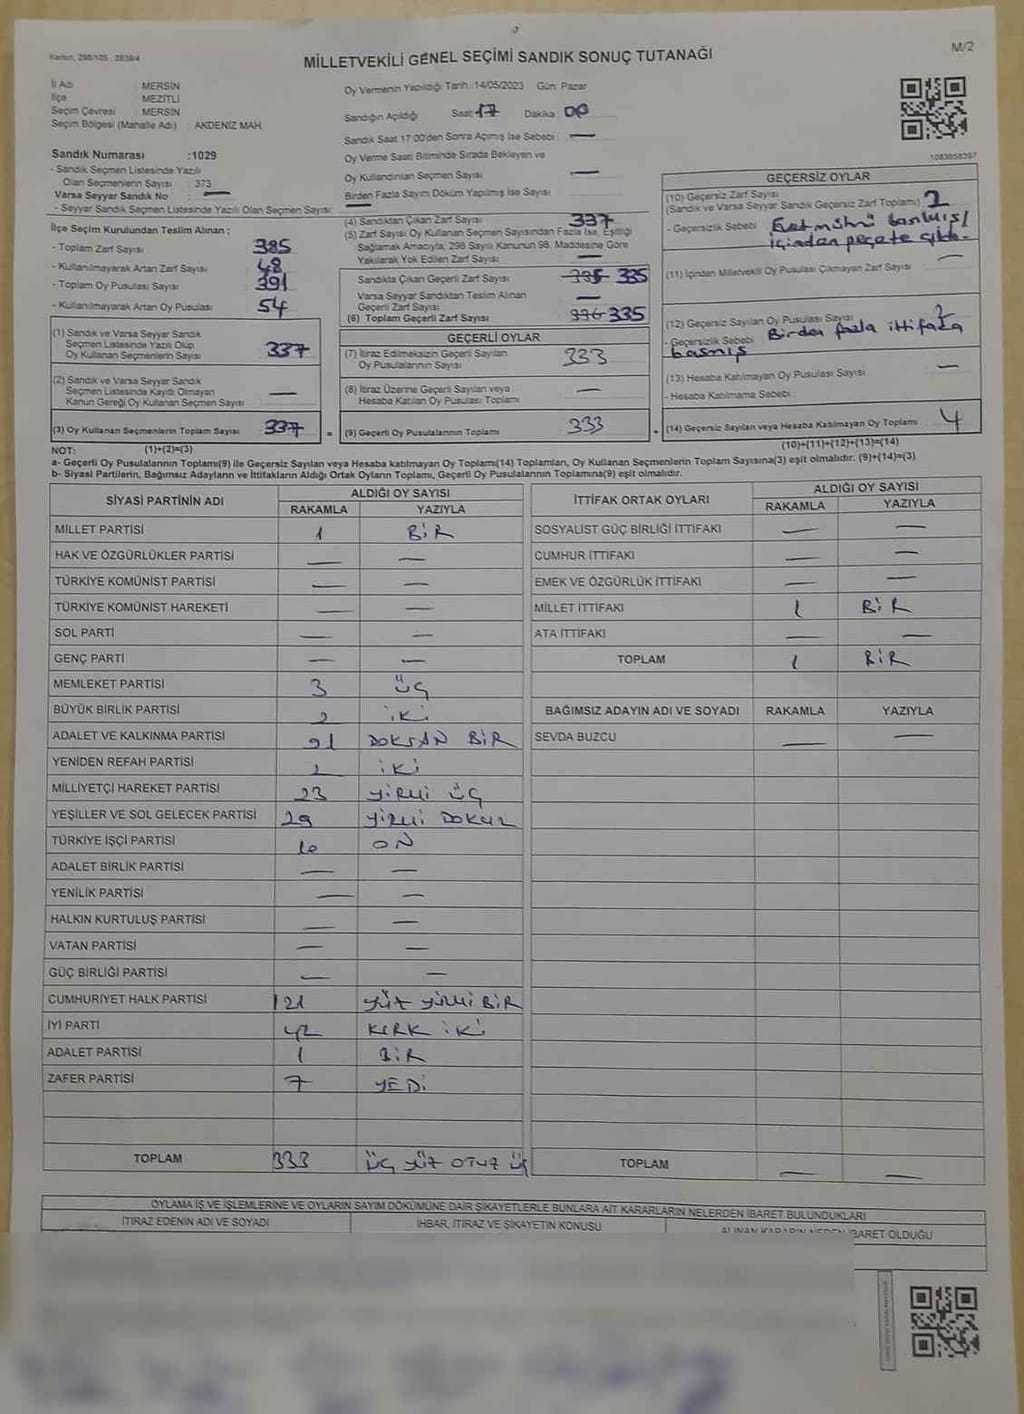 Kanun, 298/105 , 2839/4
MİLLETVEKİLİ GENEL SEÇİMİ SANDIK SONUÇ TUTANAĞI
M/2
İl Adı MERSİN
İlçe MEZİTLİ
Seçim Çevresi MERSİN
Seçim Bölgesi (Mahalle Adı) : AKDENİZ MAH.
Oy Vermenin Yapıldığı Tarih :14/05/2023 Gün: Pazar
Sandığın Açıldığı Saat: 17 Dakika 00
Sandık Saat 17:00'den Sonra Açımış İse Sebebi : —
Oy Verme Saati Bitiminde Sırada Bekleyen ve
Oy Kullandırılan Seçmen Sayısı —
Birden Fazla Sayım Döküm Yapılmış İse Sayısı —
Sandık Numarası :1029
- Sandık Seçmen Listesinde Yazılı
Olan Seçmenlerin Sayısı : 373
Varsa Seyyar Sandık No : —
- Seyyar Sandık Seçmen Listesinde Yazılı Olan Seçmen Sayısı:
1083858397
İlçe Seçim Kurulundan Teslim Alınan ;
- Toplam Zarf Sayısı 385
- Kullanılmayarak Artan Zarf Sayısı 48
- Toplam Oy Pusulası Sayısı 391
- Kullanılmayarak Artan Oy Pusulası 54
(1) Sandık ve Varsa Seyyar Sandık
Seçmen Listesinde Yazılı Olup
Oy Kullanan Seçmenlerin Sayısı 337
(2) Sandık ve Varsa Seyyar Sandık
Seçmen Listesinde Kayıtlı Olmayan
Kanun Gereği Oy Kullanan Seçmen Sayısı —
(3) Oy Kullanan Seçmenlerin Toplam Sayısı 337
(4) Sandıktan Çıkan Zarf Sayısı 337
(5) Zarf Sayısı Oy Kullanan Seçmen Sayısından Fazla İse, Eşitliği
Sağlamak Amacıyla, 298 Sayılı Kanunun 98. Maddesine Göre
Yakılarak Yok Edilen Zarf Sayısı —
Sandıkta Çıkan Geçerli Zarf Sayısı 335
Varsa Seyyar Sandıktan Teslim Alınan
Geçerli Zarf Sayısı —
(6) Toplam Geçerli Zarf Sayısı 336 335
GEÇERLİ OYLAR
(7) İtiraz Edilmeksizin Geçerli Sayılan
Oy Pusulalarının Sayısı 333
(8) İtiraz Üzerine Geçerli Sayılan veya
Hesaba Katılan Oy Pusulası Toplamı —
= (9) Geçerli Oy Pusulalarının Toplamı 333
GEÇERSİZ OYLAR
(10) Geçersiz Zarf Sayısı
(Sandık ve Varsa Seyyar Sandık Geçersiz Zarf Toplamı) 2
- Geçersizlik Sebebi Evet mührü basılmış/
içinden peçete çıktı.
(11) İçinden Milletvekili Oy Pusulası Çıkmayan Zarf Sayısı —
(12) Geçersiz Sayılan Oy Pusulası Sayısı 2
- Geçersizlik Sebebi Birden fazla ittifaka
basmış
(13) Hesaba Katılmayan Oy Pusulası Sayısı —
- Hesaba Katılmama Sebebi
+ (14) Geçersiz Sayılan veya Hesaba Katılmayan Oy Toplamı 4
NOT: (1)+(2)=(3) (10)+(11)+(12)+(13)=(14)
a- Geçerli Oy Pusulalarının Toplamı(9) ile Geçersiz Sayılan veya Hesaba katılmayan Oy Toplamı(14) Toplamları, Oy Kullanan Seçmenlerin Toplam Sayısına(3) eşit olmalıdır. (9)+(14)=(3)
b- Siyasi Partilerin, Bağımsız Adayların ve İttifakların Aldığı Ortak Oyların Toplamı, Geçerli Oy Pusulalarının Toplamına(9) eşit olmalıdır.
SİYASİ PARTİNİN ADI ALDIĞI OY SAYISI
RAKAMLA YAZIYLA
MİLLET PARTİSİ 1 BİR
HAK VE ÖZGÜRLÜKLER PARTİSİ — —
TÜRKİYE KOMÜNİST PARTİSİ — —
TÜRKİYE KOMÜNİST HAREKETİ — —
SOL PARTİ — —
GENÇ PARTİ — —
MEMLEKET PARTİSİ 3 ÜÇ
BÜYÜK BİRLİK PARTİSİ 2 İKİ
ADALET VE KALKINMA PARTİSİ 91 DOKSAN BİR
YENİDEN REFAH PARTİSİ 2 İKİ
MİLLİYETÇİ HAREKET PARTİSİ 23 YİRMİ ÜÇ
YEŞİLLER VE SOL GELECEK PARTİSİ 29 YİRMİ DOKUZ
TÜRKİYE İŞÇİ PARTİSİ 10 ON
ADALET BİRLİK PARTİSİ — —
YENİLİK PARTİSİ — —
HALKIN KURTULUŞ PARTİSİ — —
VATAN PARTİSİ — —
GÜÇ BİRLİĞİ PARTİSİ — —
CUMHURİYET HALK PARTİSİ 121 YÜZ YİRMİ BİR
İYİ PARTİ 42 KIRK İKİ
ADALET PARTİSİ 1 BİR
ZAFER PARTİSİ 7 YEDİ
TOPLAM 333 ÜÇ YÜZ OTUZ ÜÇ
İTTİFAK ORTAK OYLARI ALDIĞI OY SAYISI
RAKAMLA YAZIYLA
SOSYALİST GÜÇ BİRLİĞİ İTTİFAKI — —
CUMHUR İTTİFAKI — —
EMEK VE ÖZGÜRLÜK İTTİFAKI — —
MİLLET İTTİFAKI 1 BİR
ATA İTTİFAKI — —
TOPLAM 1 BİR
BAĞIMSIZ ADAYIN ADI VE SOYADI RAKAMLA YAZIYLA
SEVDA BUZCU —
TOPLAM — —
OYLAMA İŞ VE İŞLEMLERİNE VE OYLARIN SAYIM DÖKÜMÜNE DAİR ŞİKAYETLERLE BUNLARA AİT KARARLARIN NELERDEN İBARET BULUNDUKLARI
İTİRAZ EDENİN ADI VE SOYADI İHBAR, İTİRAZ VE ŞİKAYETİN KONUSU ALINAN KARARIN NEDEN İBARET OLDUĞU